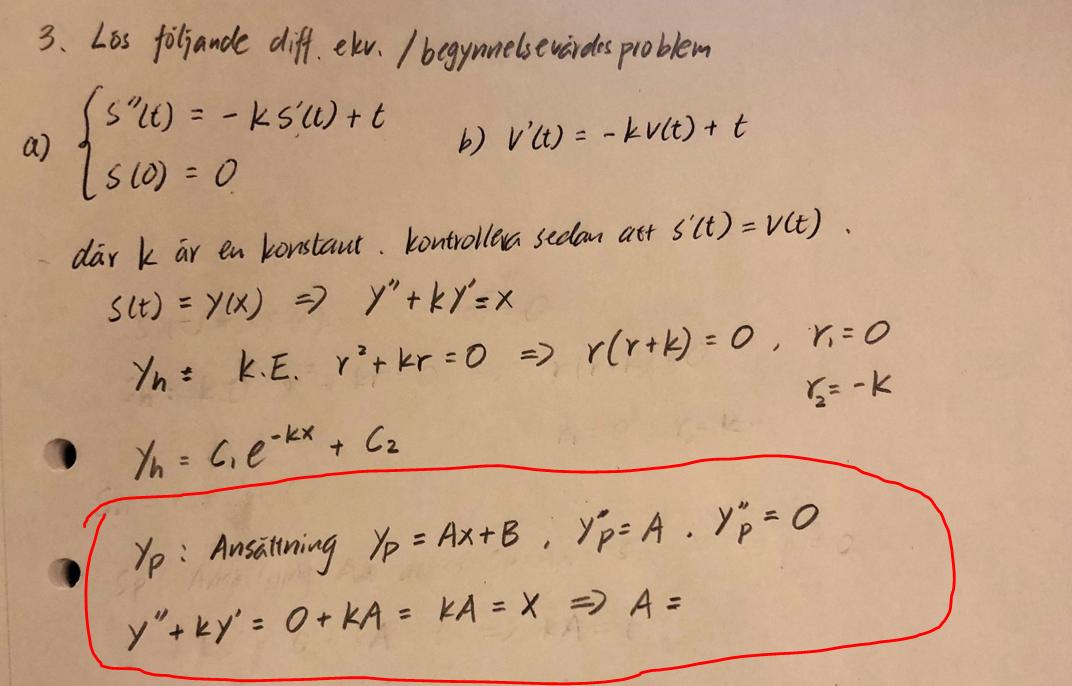 3. Lös följande diff. ekv. / begynnelsevärdesproblem
a) { s"(t) = - k s'(t) + t
s(0) = 0
b) v'(t) = - kv(t) + t
där k är en konstant. kontrollera sedan att s'(t) = v(t).
s(t) = y(x) => y" + ky' = x
yₕ = K.E. r² + kr = 0 => r(r+k) = 0, r₁ = 0
r₂ = -k
yₕ = C₁e^(-kx) + C₂
yₚ : Ansättning yₚ = Ax+B, y'ₚ = A. y"ₚ = 0
y" + ky' = 0 + kA = kA = x => A =